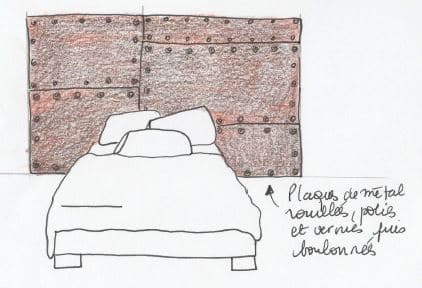 Plaques de métal
rouillés, polis
et vernies puis
boulonnés